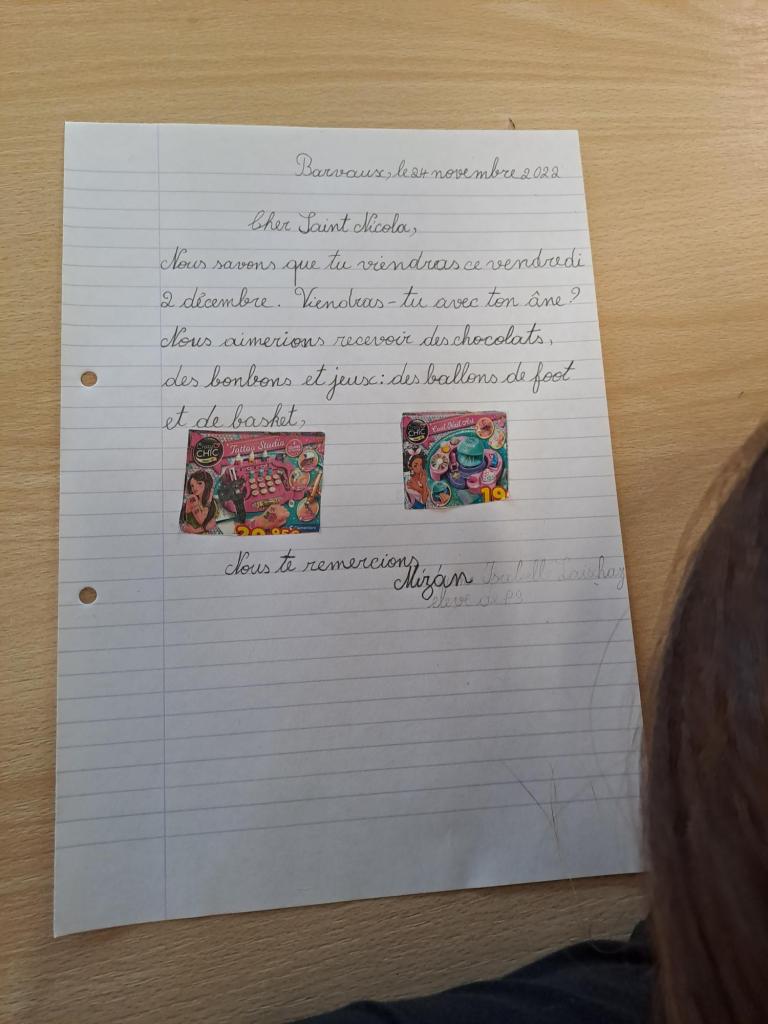 Barvaux, le 24 novembre 2022
Cher Saint Nicola,
Nous savons que tu viendras ce vendredi
2 décembre. Viendras-tu avec ton âne?
Nous aimerions recevoir des chocolats,
des bonbons et jeux: des ballons de foot
et de basket,
CHIC
Tattoo Studio
CHIC
Cool Nail Art
19
Nous te remercions
Mizán Isabelle
élève de P3